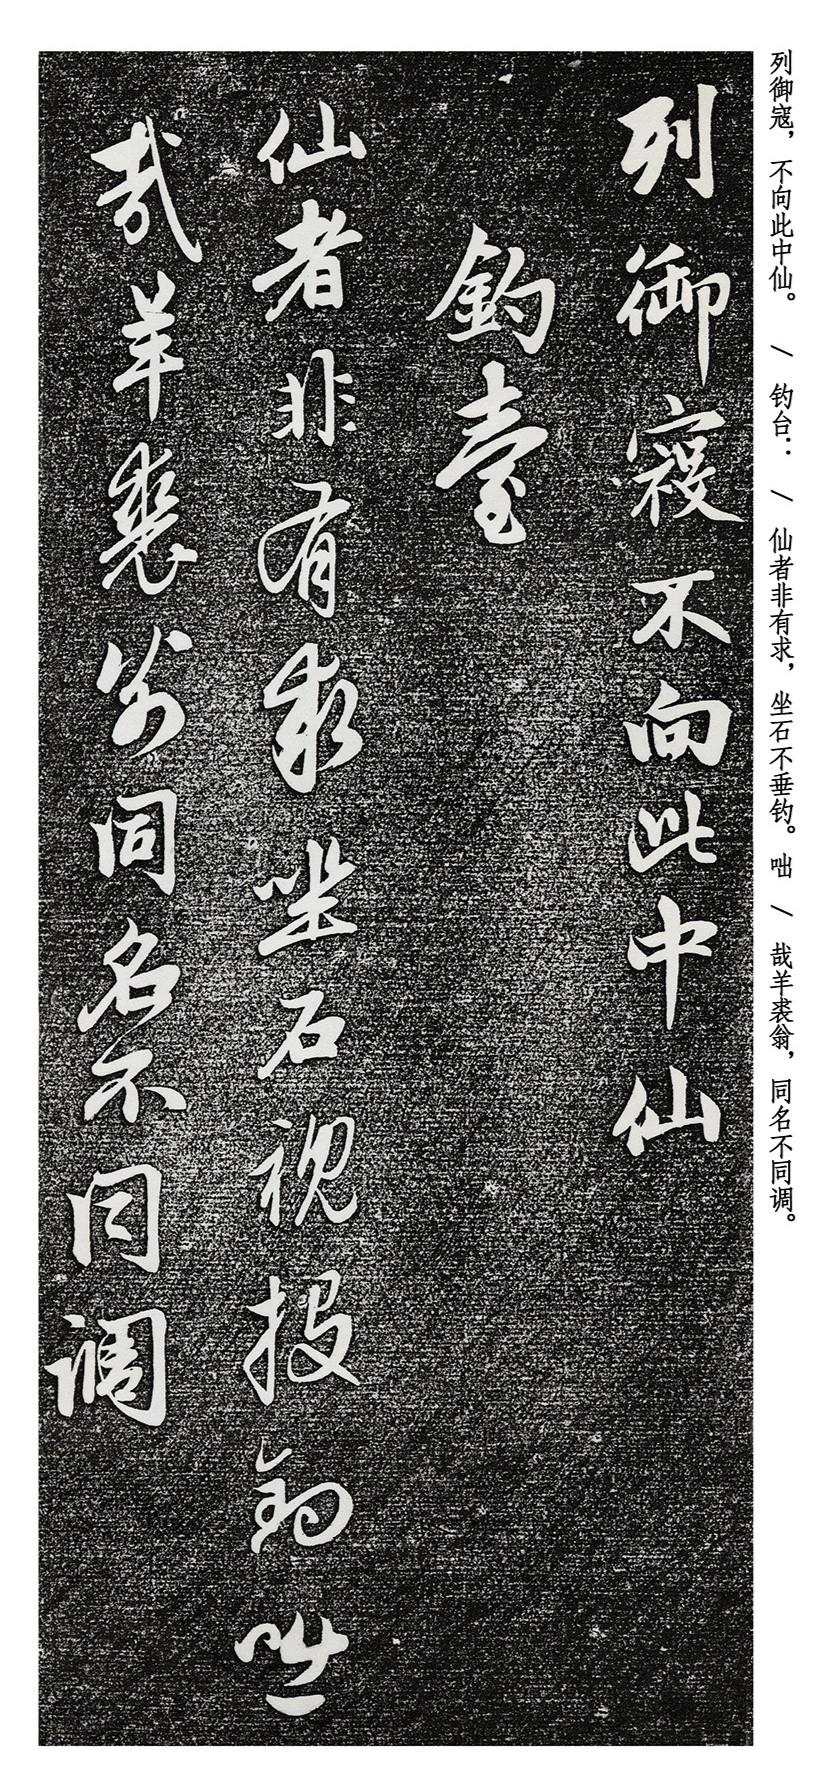 列御寇，不向此中仙。 / 钓台： / 仙者非有求，坐石不垂钓。咄 / 哉羊裘翁，同名不同调。
列御寇不向此中仙
釣臺
仙者非有求坐石視投釣咄
哉羊裘翁同名不同調